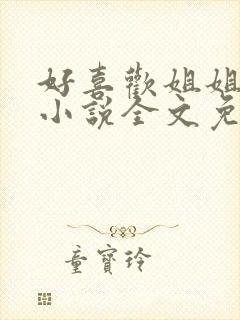 好喜歡姐姐
小說全文免
童寶玲